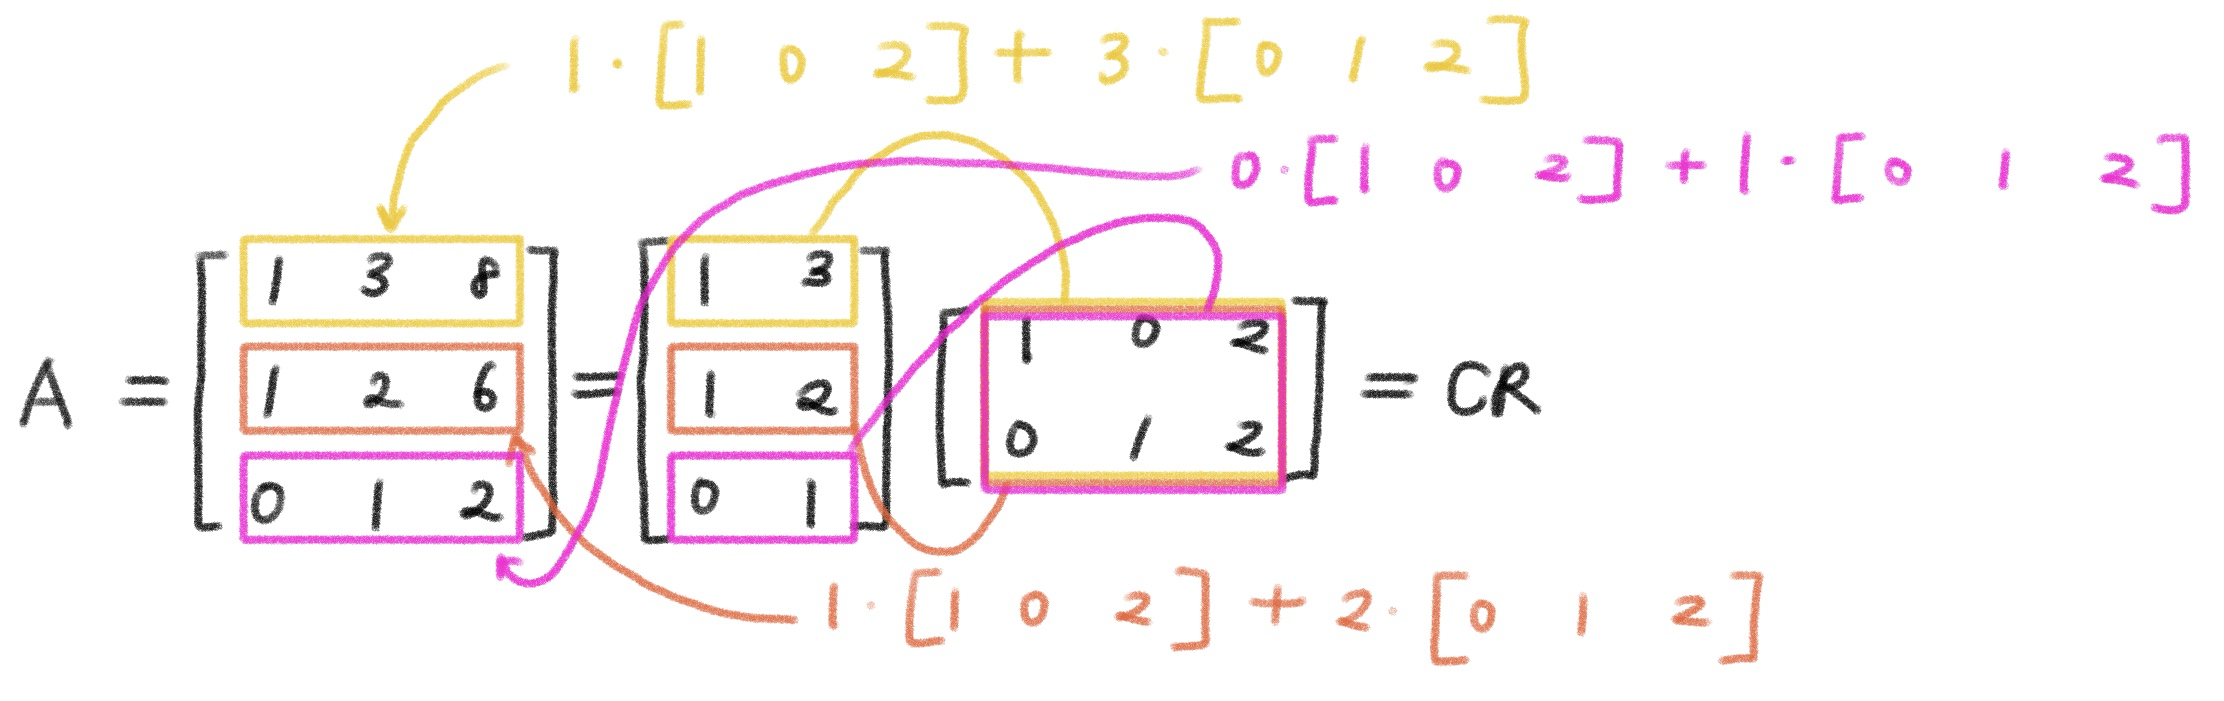 1 · [1 0 2] + 3 · [0 1 2]
0 · [1 0 2] + 1 · [0 1 2]
A = [1 3 8
1 2 6
0 1 2] = [1 3
1 2
0 1] [1 0 2
0 1 2] = CR
1 · [1 0 2] + 2 · [0 1 2]